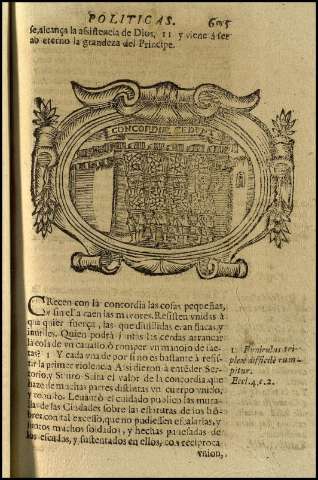 POLITICAS. 605
se, alcança la asistencia de Dios, 11 y viene à ser
eterno la grandeza del Principe.
CONCORDIÆ CEDUNT
CRecen con la concordia las cosas pequeñas,
y sin ella caen las mayores. Resisten vnidas à
qualquier fuerça, las que diuididas eran flacas, y
inutiles. Quien podrà juntas las cerdas arrancar
la cola de vn cauallo, ò romper vn manojo de sae-
tas? 1 Y cada vna de por si no es bastante à resis-
tir la primer violencia. Assi dieron à entēder Ser-
torio, y Sciluro Scita el valor de la concordia que
haze de muchas partes distintas vn cuerpo vnido,
y robusto. Leuantò el cuidado publico las mura-
llas de las Ciudades sobre las estaturas de los hō-
bres, con tal excesso, que no pudiessen escalarlas, y
juntos muchos soldados, y hechas pauesadas de
los escudos, y sustentados en ellos, con reciproca
vnion,
1 Funiculus tri-
plex difficilè rum-
pitur.
Eccl. 4. c. 2.